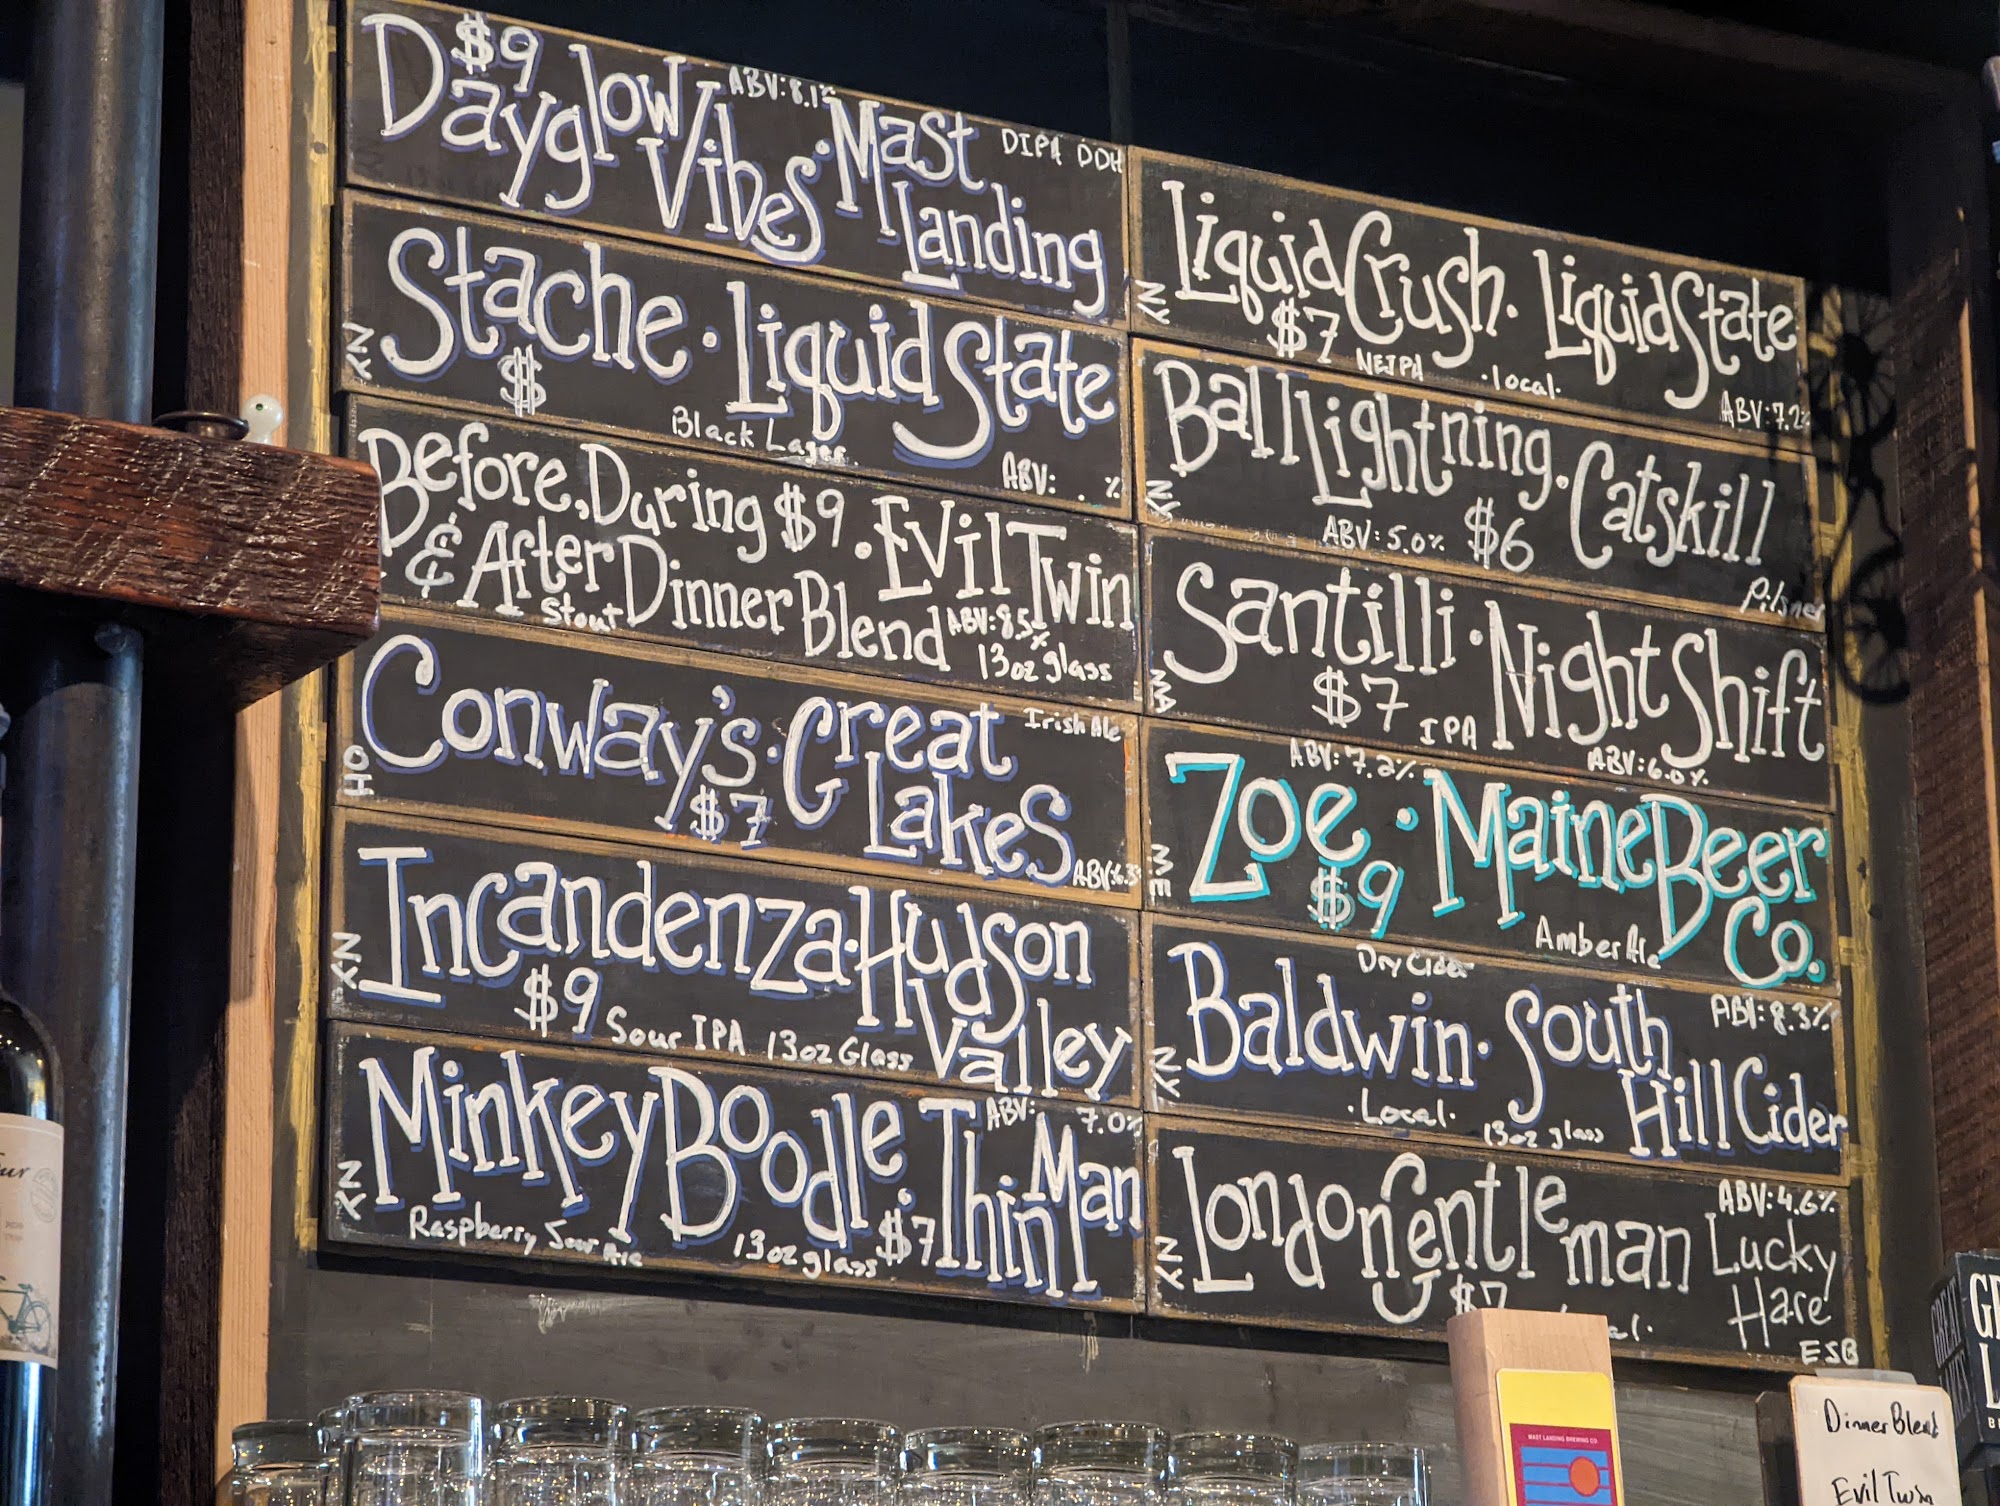 $9 ABV: 8.1%
Dayglow Vibes · Mast Landing
DIPA DDH
NY Stache · Liquid State
$
Black Lager
ABV: . %
Before, During $9 · Evil Twin
& After Dinner Blend
Stout ABV: 8.5%
13oz glass
OH Conway's · Great Lakes
Irish Ale
$7
ABV: 6.3
NY Incandenza · Hudson Valley
$9 Sour IPA 13oz Glass
ABV: 7.0%
NY Minkey Boodle · Thin Man
Raspberry Sour Ale 13oz glass $7
NY Liquid Crush · Liquid State
$7 NEIPA · local ·
ABV: 7.2%
NY Ball Lightning · Catskill
ABV: 5.0% $6
Pilsner
MA Santilli · Night Shift
$7 IPA
ABV: 6.0%
ABV: 7.2%
ME Zoe · Maine Beer Co.
$9
Amber Ale
Dry Cider
ABV: 8.3%
NY Baldwin · South Hill Cider
· Local · 13oz glass
ABV: 4.6%
NY London Gentleman Lucky Hare
$7
ESB
MAST LANDING BREWING CO.
Dinner Blend
Evil Twin